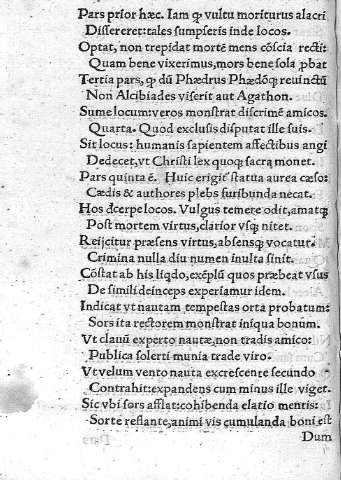 Pars prior hæc. Iam ꝙ vultu moriturus alacri
Differeret: tales sumpseris inde locos.
Optat, non trepidat mortē mens cōscia recti:
Quam bene vixerimus, mors bene sola ꝓbat
Tertia pars, ꝙ dū Phædrus Phædōꝗ reuinctū
Non Alcibiades viserit aut Agathon.
Sume locum: veros monstrat discrimē amicos.
Quarta. Quod exclusis disputat ille suis.
Sit locus: humanis sapientem affectibus angi
Dedecet, vt Christi lex quoꝗ sacra monet.
Pars quinta ē. Huic erigiť statua aurea cæso:
Cædis & authores plebs furibunda necat.
Hos đcerpe locos. Vulgus temere odit, amatꝗ
Post mortem virtus, clarior vsꝗ nitet.
Reijcitur præsens virtus, absensꝗ vocatur.
Crimina nulla diu numen inulta sinit.
Cōstat ab his liqdo, exēplū quos præbeat vsus
De simili deinceps experiamur idem.
Indicat vt nautam tempestas orta probatum:
Sors ita rectorem monstrat iniqua bonum.
Vt clauū experto nautæ, non tradis amico:
Publica solerti munia trade viro.
Vt velum vento nauta excrescente secundo
Contrahit: expandens cum minus ille viget.
Sic vbi sors afflat: cohibenda elatio mentis:
Sorte reflante, animi vis cumulanda boni est
Dum